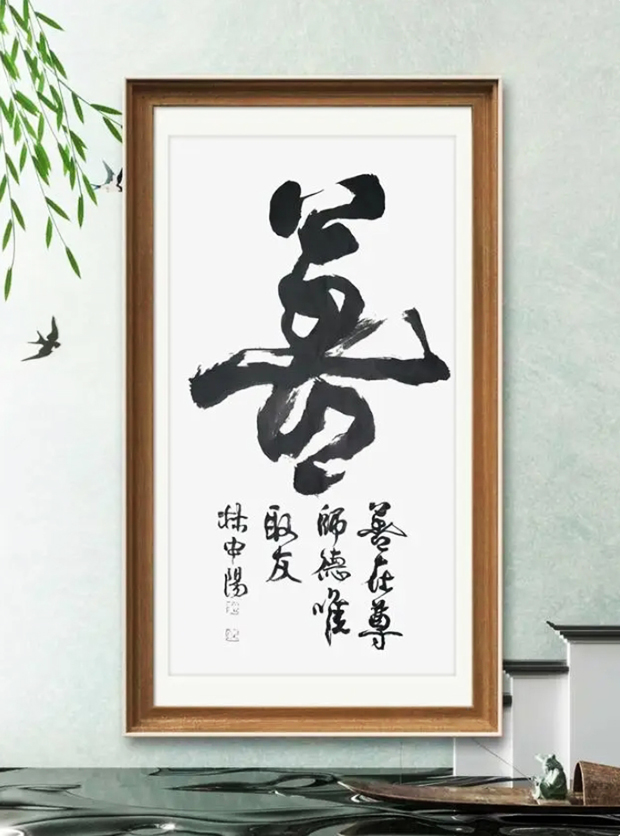 善
善在尊
師德唯
取友
林中陽